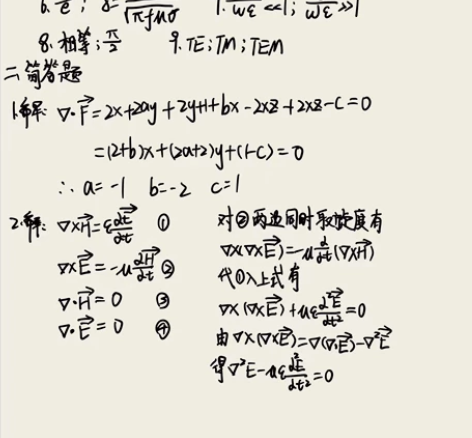 δ = 1/√(πfμσ) 1. σ/ωε <<1; σ/ωε >>1
8. 相等; π/2 9. TE; TM; TEM
二 简答题
1.解: ∇·F⃗=2x+2ay+2y+1+bx-2xz+2xz-c=0
=(2+b)x+(2a+2)y+(1-c)=0
∴ a=-1 b=-2 c=1
2.解: ∇×H⃗=ε∂E⃗/∂t ①
∇×E⃗=-μ∂H⃗/∂t ②
∇·H⃗=0 ③
∇·E⃗=0 ④
对②两边同时取旋度有
∇×(∇×E⃗)=-μ∂/∂t(∇×H⃗)
代①入上式有
∇×(∇×E⃗)+με∂²E⃗/∂t²=0
由∇×(∇×E⃗)=∇(∇·E⃗)-∇²E⃗
得∇²E-με∂²E⃗/∂t²=0